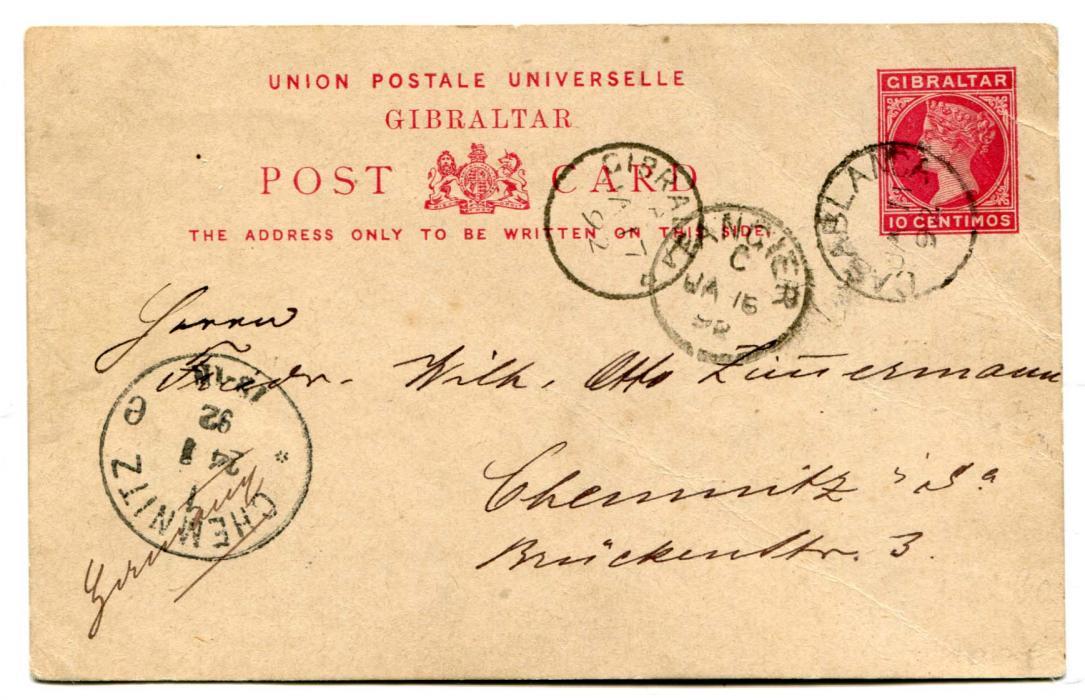 UNION POSTALE UNIVERSELLE
GIBRALTAR
POST CARD
THE ADDRESS ONLY TO BE WRITTEN ON THIS SIDE.
GIBRALTAR
10 CENTIMOS
GIBRALTAR
JA 17
92
TANGIER
C
JA 16
92
CASABLANCA
Herrn
Friedr. Wilh. Otto Zimmermann
Chemnitz i/Sa
Brückenstr. 3.
Germany
CHEMNITZ
24 1
92